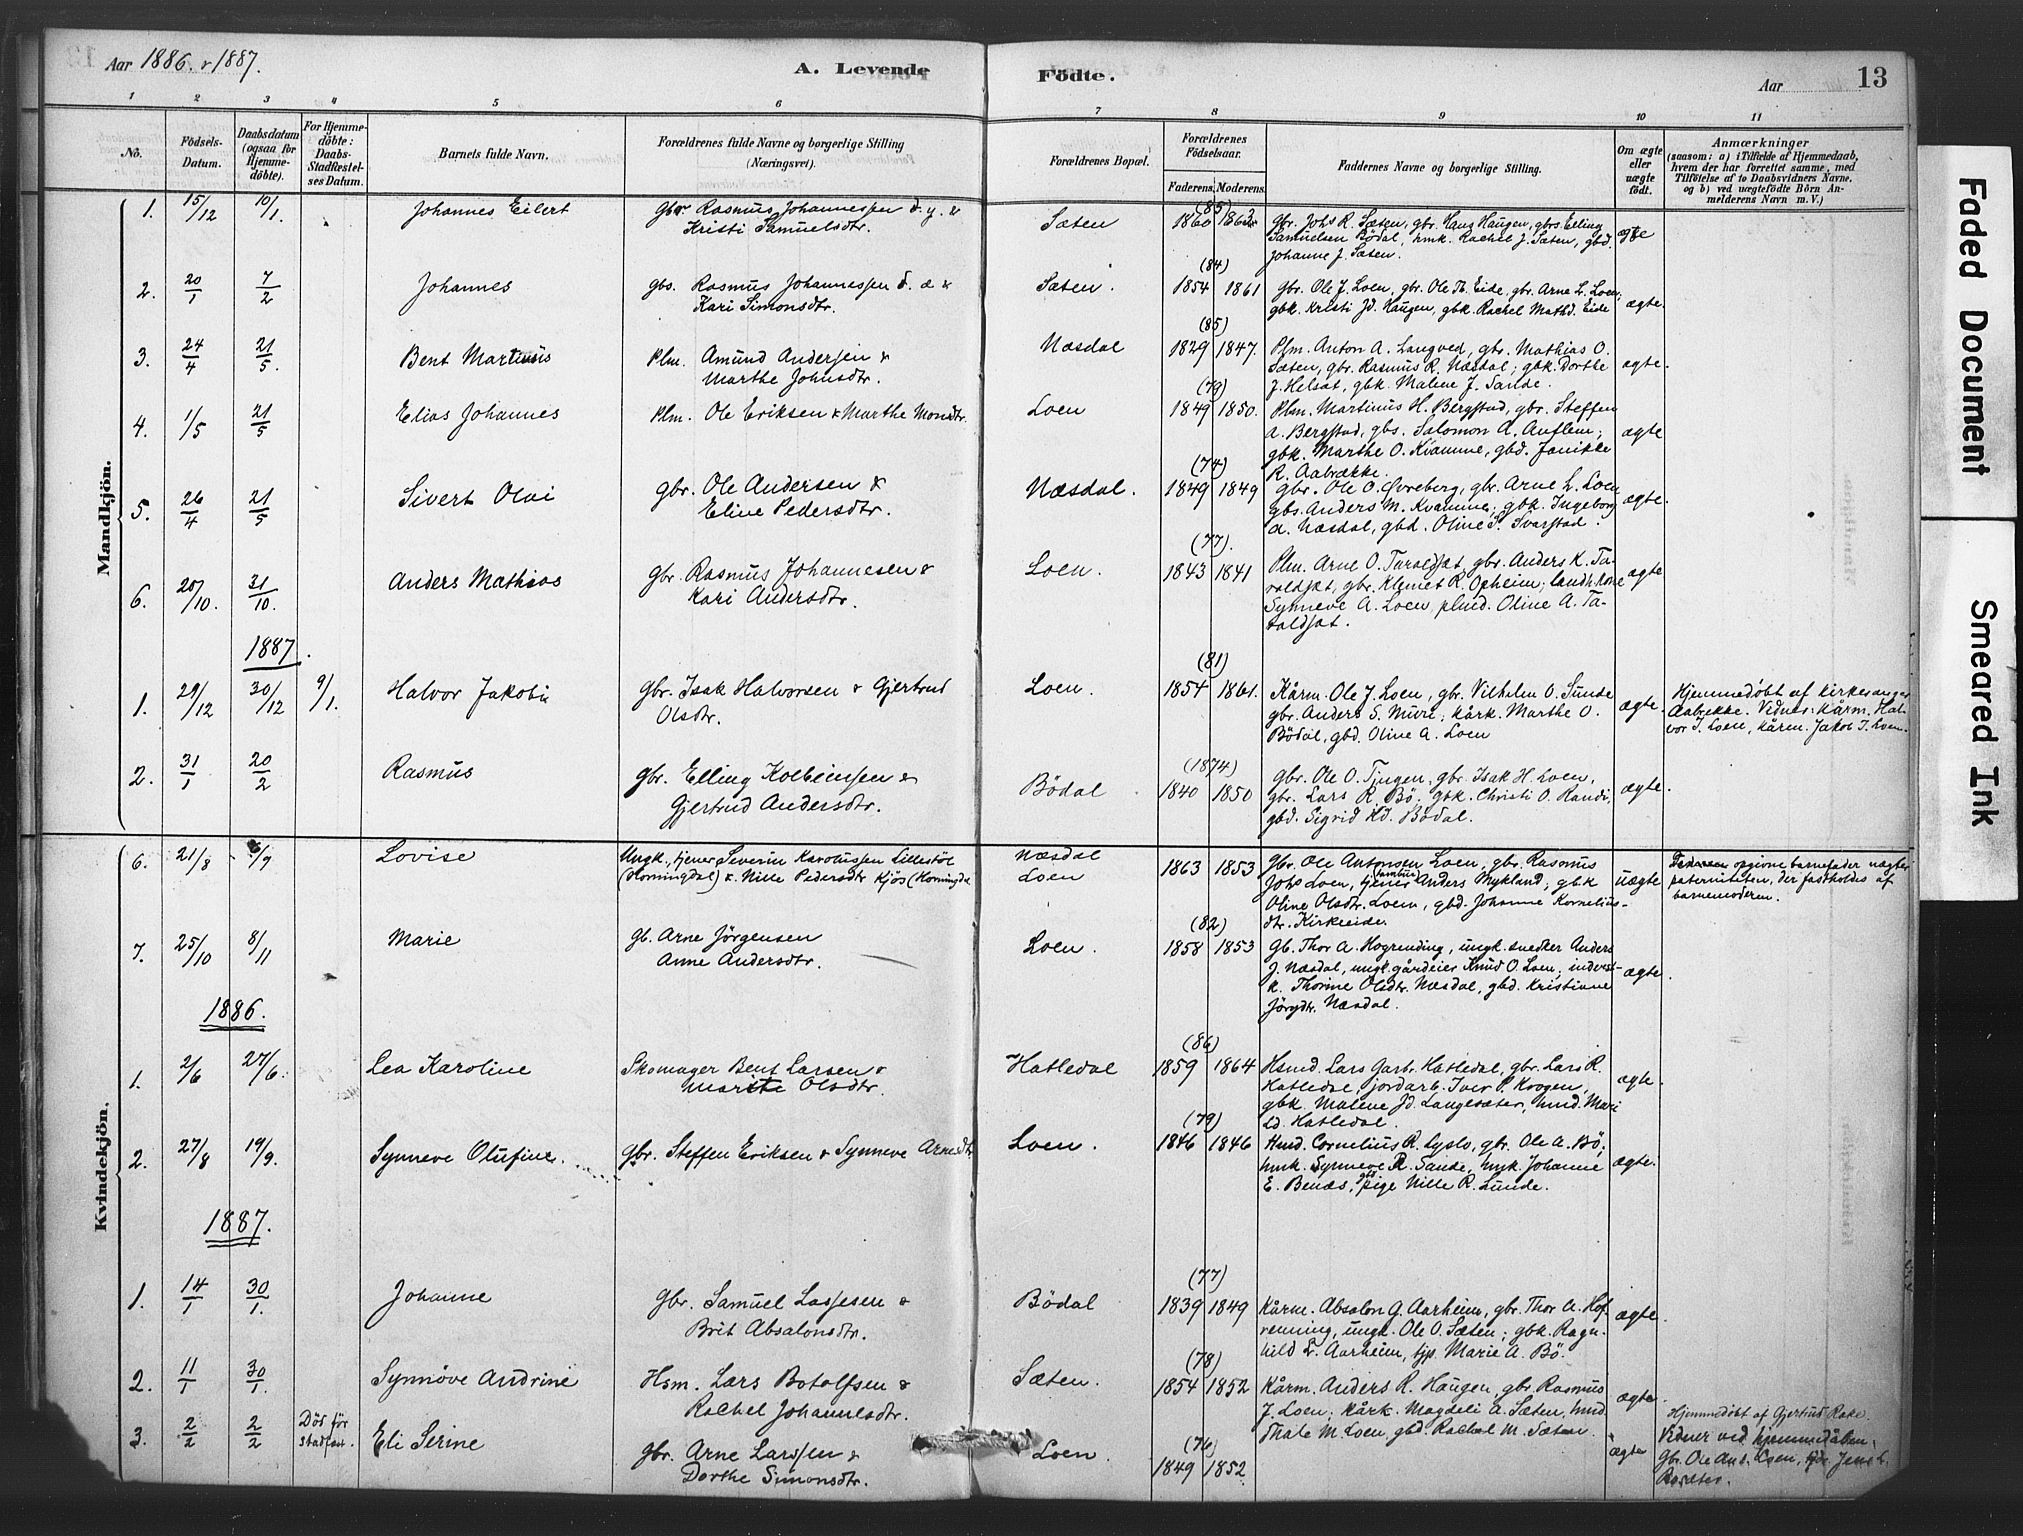 Aar 1886. & 1887.
A. Levende
Födte.
Aar
13
1 2 3 4 5 6 7 8 9 10 11
No.
Födsels-Datum.
Daabsdatum (ogsaa for Hjemme-döbte).
For Hjemme-döbte: Daabs-Stadfæstel-ses Datum.
Barnets fulde Navn.
Forældrenes fulde Navne og borgerlige Stilling (Næringsvei).
Forældrenes Bopæl.
Forældrenes Födselsaar.
Faderens. Moderens.
Faddernes Navne og borgerlige Stilling.
Om ægte eller uægte födt.
Anmærkninger
(saasom: a) i Tilfælde af Hjemmedaab, hvem der har forrettet samme, med Tilföielse af to Daabsvidners Navne, og b) ved uægtefödte Börn An-melderens Navn m. V.)
Mandkjön.
1. 15/12 10/1. Johannes Eilert gbr Rasmus Johannessen d. y. &
Kristi Samuelsdtr. Sæten (85) 1860 1863 gbr. Johs R. Sæten, gbr. Hans Haugen, gbrs. Elling
Samuelsen Bödal, hmk. Rachel J. Sæten, gbd.
Johanne J. Sæten. ægte
2. 20/1 7/2 Johannes gbs. Rasmus Johannessen d. æ &
Kari Simonsdtr. Sæten. (84) 1854 1861 gbr. Ole J. Loen, gbr. Ole Th. Eide, gbr. Arne L. Loen;
gbk. Kristi Jd. Haugen, gbk. Rachel Mathd. Eide ægte.
3. 24/4 21/5. Bent Martinus Plm. Amund Andersen &
Marthe Johnsdtr. Næsdal (85) 1829 1847. Plm. Anton A. Langved, gbr. Mathias O.
Sæten, gbr. Rasmus R. Næsdal; gbk. Dorthe
J. Helsæt, gbk. Malene J. Sande. ægte.
4. 1/5 21/5 Elias Johannes Plm. Ole Eriksen & Marthe Monsdtr. Loen (79) 1849 1850. Plm. Martinus H. Bergstad, gbr. Steffen
A. Bergstad, gbs. Salomon A. Auflem;
gbk. Marthe O. Kvamme, gbd. Janikke
R. Aabrække. ægte
5. 26/4 21/5 Sivert Olai gbr. Ole Andersen &
Eline Pedersdtr. Næsdal. (74) 1849 1849 gbr. Ole O. Övreberg, gbr. Arne L. Loen
gbs. Anders M. Kvamme; gbk. Ingeborg
A. Næsdal, gbd. Oline S. Svarstad. ægte.
6. 20/10. 31/10. Anders Mathias gbr. Rasmus Johannesen &
Kari Andersdtr. Loen. (77). 1843 1841 Plm. Arne O. Taraldset, gbr. Anders K. Ta-
raldset, gbr. Klemet R. Opheim; landh.kone
Synneve A. Loen, plmd. Oline A. Ta-
raldset. ægte
1887.
1. 29/12 30/12 9/1. Halvor Jakob gbr. Isak Halvorsen & Gjertrud
Olsdtr. Loen. (81) 1854 1861. Kårm. Ole J. Loen, gbr. Vilhelm O. Sunde
gbr. Anders S. Muri; kårk. Marthe O.
Bödal, gbd. Oline A. Loen ægte. Hjemmedöbt af kirkesanger
Aabrekke. Vidner: kårm. Hal-
vor I. Loen, kårm. Jakob I. Loen.
2. 31/1 20/2 Rasmus gbr. Elling Kolbeinsen &
Gjertrud Andersdtr. Bödal (1874) 1840 1850 gbr. Ole O. Tjugen, gbr. Isak H. Loen,
gbr. Lars R. Bö; gbk. Christi O. Randi,
gbd. Sigrid Kd. Bödal. ægte.
Kvindekjön.
6. 21/8 /9 Lovise Ungk., tjener Severin Karolussen Lillestöl
(Horningdal) & Nille Pedersdtr Kjös (Horningdal) Næsdal
Loen 1863 1853 gbr. Ole Antonsen Loen, gbr. Rasmus
Johs Loen, tjener Anders Mykland; gbk
Oline Olsdtr. Loen, gbd. Johanne Kornelius-
dtr. Kirkeeide. uægte opgivne barnefader nægter
paterniteten, der fastholdes af
barnemoderen.
7. 25/10 8/11 Marie gb. Arne Jörgensen
Anne Andersdtr. Loen. (82) 1858 1853 gb. Thor A. Hogrending, ungk. snedker Anders
J. Næsdal, ungk. gårdeier Knud O. Loen; inderst-
k. Thorine Olsdtr. Næsdal, gbd. Kristiane
Jörgdtr. Næsdal. ægte.
1886.
1. 2/6 27/6. Lea Karoline Skomager Bent Larsen &
Marite Olsdtr. Hatledal (86) 1859 1864 Hsmd. Lars Jarb. Hatledal, gbr. Lars R.
Hatledal, jordarb. Iver P. Krogen,
gbk. Malene Jd. Langesæter, hmd. Mari
Ld. Hatledal. ægte.
2. 27/8 19/9. Synneve Olufine. gbr. Steffen Eriksen & Synneve Arnesdtr Loen. (79) 1846 1846 Hmd. Cornelius R. Lyslo, gbr. Ole A. Bö;
hmk. Synneve R. Sande, hmk. Johanne
E. Benæs, pige Nille R. Lunde. ægte.
1887.
1. 14/1 30/1. Johanne gbr. Samuel Lassesen &
Brit Absalonsdtr. Bödal (77) 1839 1849 Kårm. Absalon G. Aarheim, gbr. Thor A. Hof-
renning, ungk. Ole O. Sæten; gbk. Ragn-
hild E. Aarheim, tjp. Marie A. Bö. ægte.
2. 11/1 30/1. Synnöve Andrine Hsm. Lars Botolfsen &
Rachel Johannesdtr. Sæten. (78) 1854 1852 Kårm. Anders R. Haugen, gbr. Rasmus
J. Loen; kårk. Magdeli A. Sæten, hmd.
Thale M. Loen, gbd. Rachel M. Sæten ægte.
3. 2/2 2/2 Död för
stadfæst. Eli Serine gbr. Arne Larssen &
Dorthe Simonsdtr. Loen. (76) 1849 1852 ægte Hjemmedöbt af Gjertrud Rake.
Vidner ved hjemmedåben:
gbr. Ole Ant. Loen, Jens L.
Faded Document
Smeared Ink